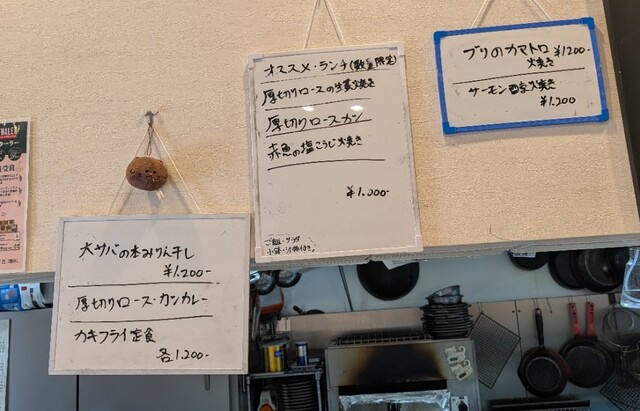 大サバの本みりん干し
¥1.200-
厚切りロース・カツカレー
カキフライ定食
各1.200-
オススメ・ランチ(数量限定)
厚切りロースの生姜焼き
厚切りロースカツ
赤魚の塩こうじ焼き
¥1.000-
ご飯・サラダ
小鉢・汁物付き
ブリのカマトロ ¥1200-
焼き
サーモン西京焼き
¥1.200